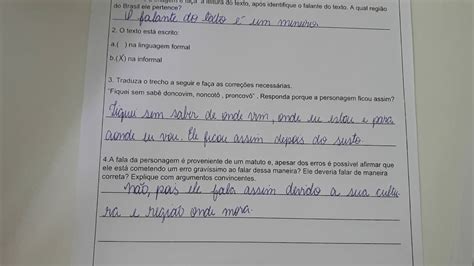 imagem e faça a leitura do texto, após identifique o falante do texto. A qual região
do Brasil ele pertence?
O falante do texto é um mineiro.
2. O texto está escrito:
a.( ) na linguagem formal
b.(X) na informal
3. Traduza o trecho a seguir e faça as correções necessárias.
"Fiquei sem sabê doncovim, noncotô , proncovô" . Responda porque a personagem ficou assim?
Fiquei sem saber de onde vim, onde eu estou e para
aonde eu vou. Ele ficou assim depois do susto
4.A fala da personagem é proveniente de um matuto e, apesar dos erros é possível afirmar que
ele está cometendo um erro gravíssimo ao falar dessa maneira? Ele deveria falar de maneira
correta? Explique com argumentos convincentes.
não, pois ele fala assim devido a sua cultu
ra e região onde mora.